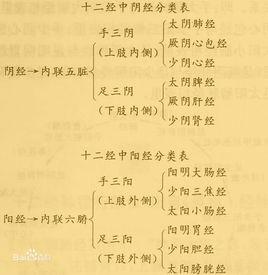 十二经中阴经分类表
太阴肺经
手三阴
厥阴心包经
(上肢内侧)
少阴心经
阴经→内联五脏
太阴脾经
足三阴
厥阴肝经
(下肢内侧)
少阴肾经
十二经中阳经分类表
阳明大肠经
手三阳
少阳三焦经
(上肢外侧)
太阳小肠经
阳经→内联六腑
阳明胃经
足三阳
少阳胆经
(下肢外侧)
太阳膀胱经
Bai百科